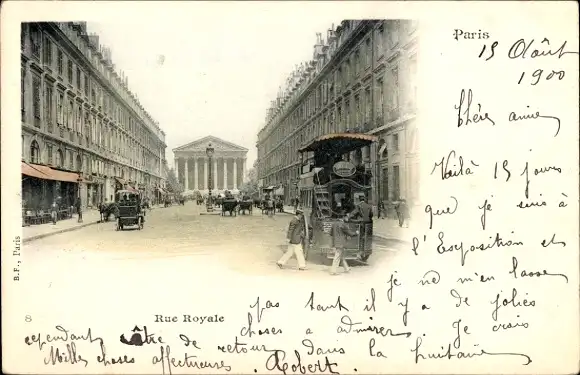 Paris
15 Août
1900
Chère amie,
Voilà 15 jours
que je suis à
l'Exposition et
je ne m'en lasse
pas tant il y a de jolies
choses a admirer. Je crois
cependant être de retour dans la huitaine
Milles choses affectueuses. Robert.
Rue Royale
8
B.F., Paris